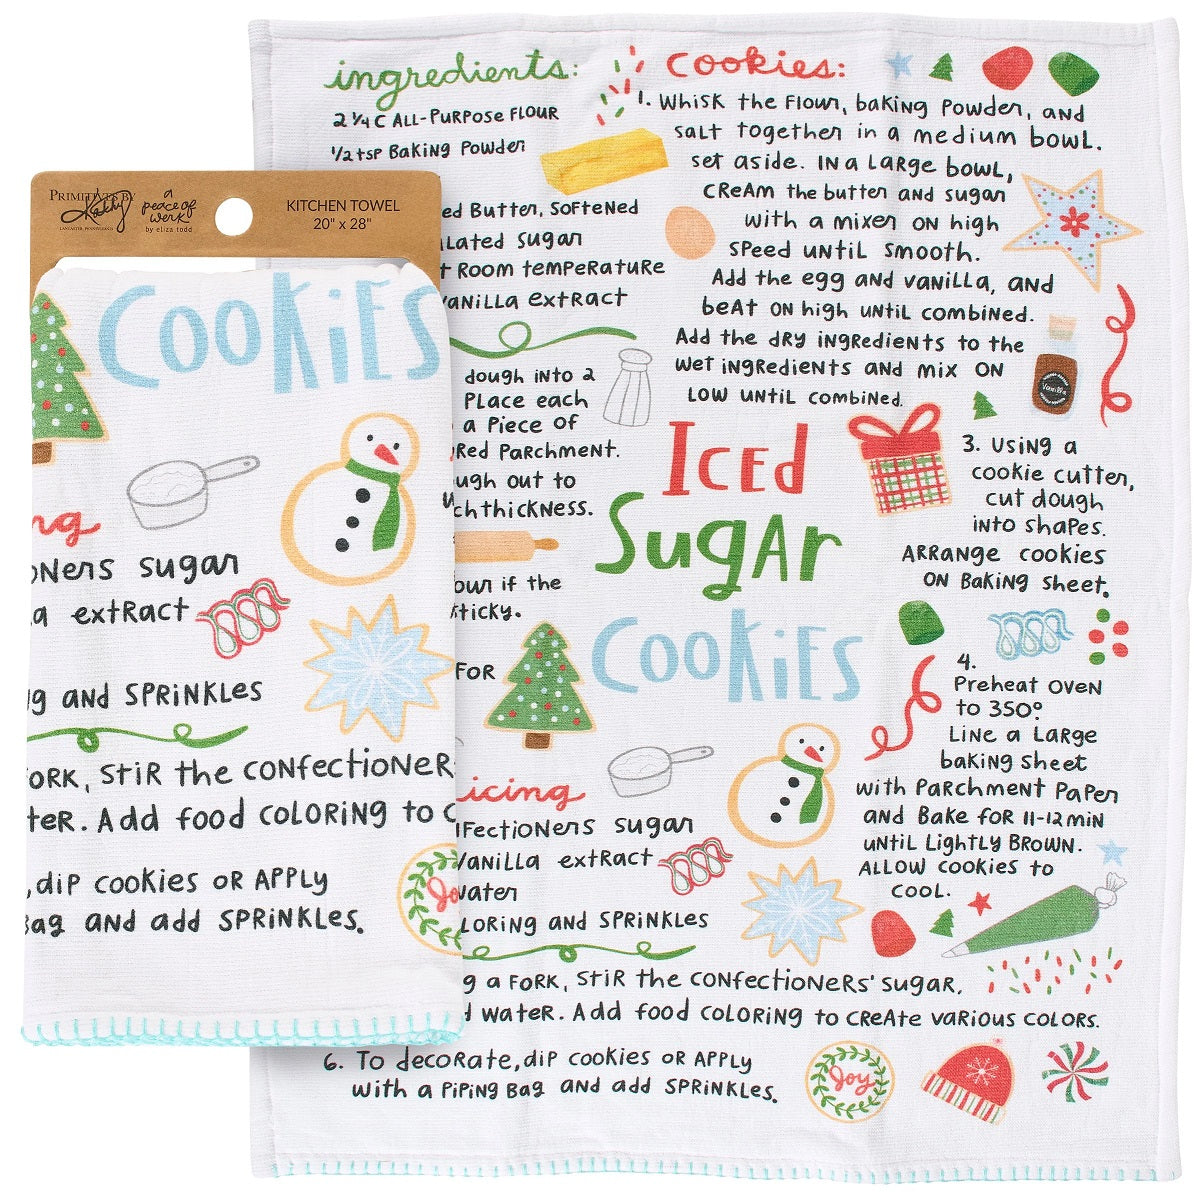 PRIMITIVES BY
Kathy
LANCASTER, PENNSYLVANIA
a
peace of
werk
by eliza todd
KITCHEN TOWEL
20" x 28"
COOKIES
sugar
extract
AND SPRINKLES
FORK, STIR the CONFECTIONER
Add food COLORING to
, dip cookies OR APPLY
AND and add SPRINKLES.
ingredients:
2 1/4 C ALL-PURPOSE FLOUR
1/2 tsp Baking Powder
Butter, Softened
sugar
ROOM temperature
VANILLA extract
dough into 2
Place each
a piece of
Parchment.
out to
thickness.
if the
sticky.
FOR
icing
sugar
Vanilla extract
Water
and Sprinkles
a FORK, STIR the CONFECTIONERS' sugar,
water. Add food coloring to create various colors.
6. To decorate, dip cookies or apply
with a piping bag and add sprinkles.
cookies:
1. Whisk the flour, baking powder, and
salt together in a medium bowl.
set aside. In a large bowl,
cream the butter and sugar
with a mixer on high
speed until smooth.
Add the egg and vanilla, and
beat on high until combined.
Add the dry ingredients to the
wet ingredients and mix on
low until combined.
Vanilla
Iced
Sugar
Cookies
3. Using a
cookie cutter,
cut dough
into shapes.
Arrange cookies
on baking sheet.
4.
Preheat oven
to 350°
Line a large
baking sheet
with parchment paper
and bake for 11-12 min
until lightly brown.
Allow cookies to
cool.
Joy